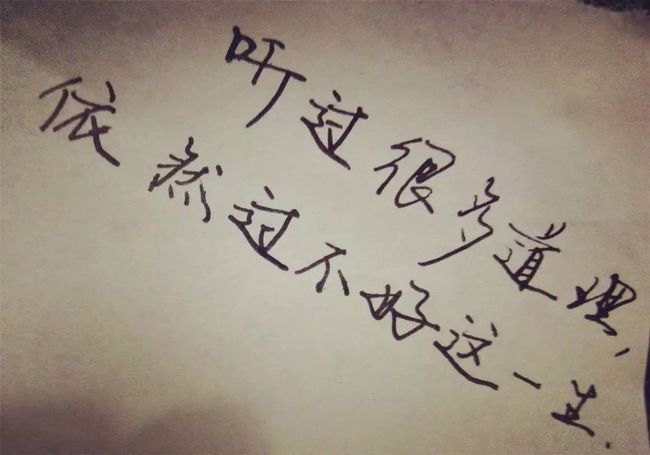 听过很多道理，
依然过不好这一生.